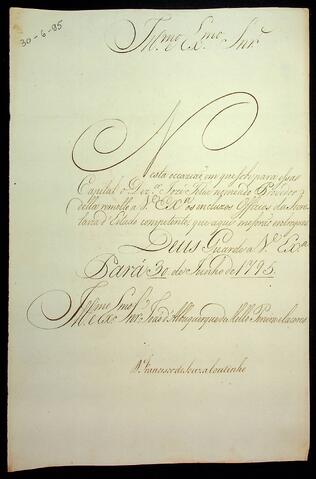 30-6-95
Illmo. e Exmo. Snr.
Nesta occaziaõ em que sobe para essa
Capital o
della remetto a V. Exa. os incluzos Officios da Secre
taria d'Estado competente, que aqui
Deus Guarde a V. Exa.
Pará 30 de Junho de 1795
Illmo. e Exmo. Snr. João d'Albuquerque de Mello Pereira e Caceres
D. Francisco de Souza Coutinho